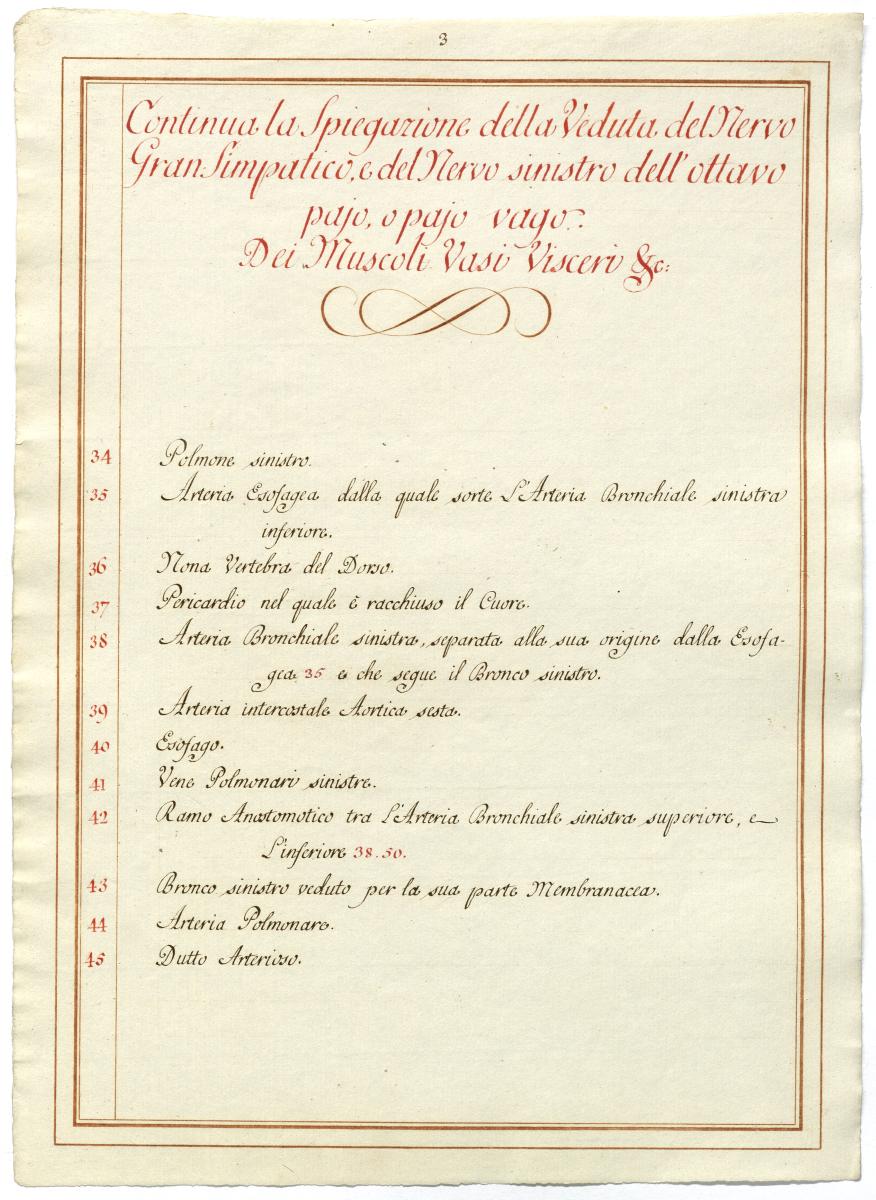 3
Continua la Spiegazione della Veduta del Nervo
Gran Simpatico, e del Nervo sinistro dell'ottavo
pajo, o pajo vago.
Dei Muscoli Vasi Visceri &c:
34 Polmone sinistro.
35 Arteria Esofagea dalla quale sorte L'Arteria Bronchiale sinistra
inferiore.
36 Nona Vertebra del Dorso.
37 Pericardio nel quale è racchiuso il Cuore.
38 Arteria Bronchiale sinistra, separata alla sua origine dalla Esofa-
gea 35 e che segue il Bronco sinistro.
39 Arteria intercostale Aortica sesta.
40 Esofago.
41 Vene Polmonari sinistre.
42 Ramo Anastomotico tra L'Arteria Bronchiale sinistra superiore, e
L'inferiore 38.50.
43 Bronco sinistro veduto per la sua parte Membranacea.
44 Arteria Polmonare.
45 Dutto Arterioso.